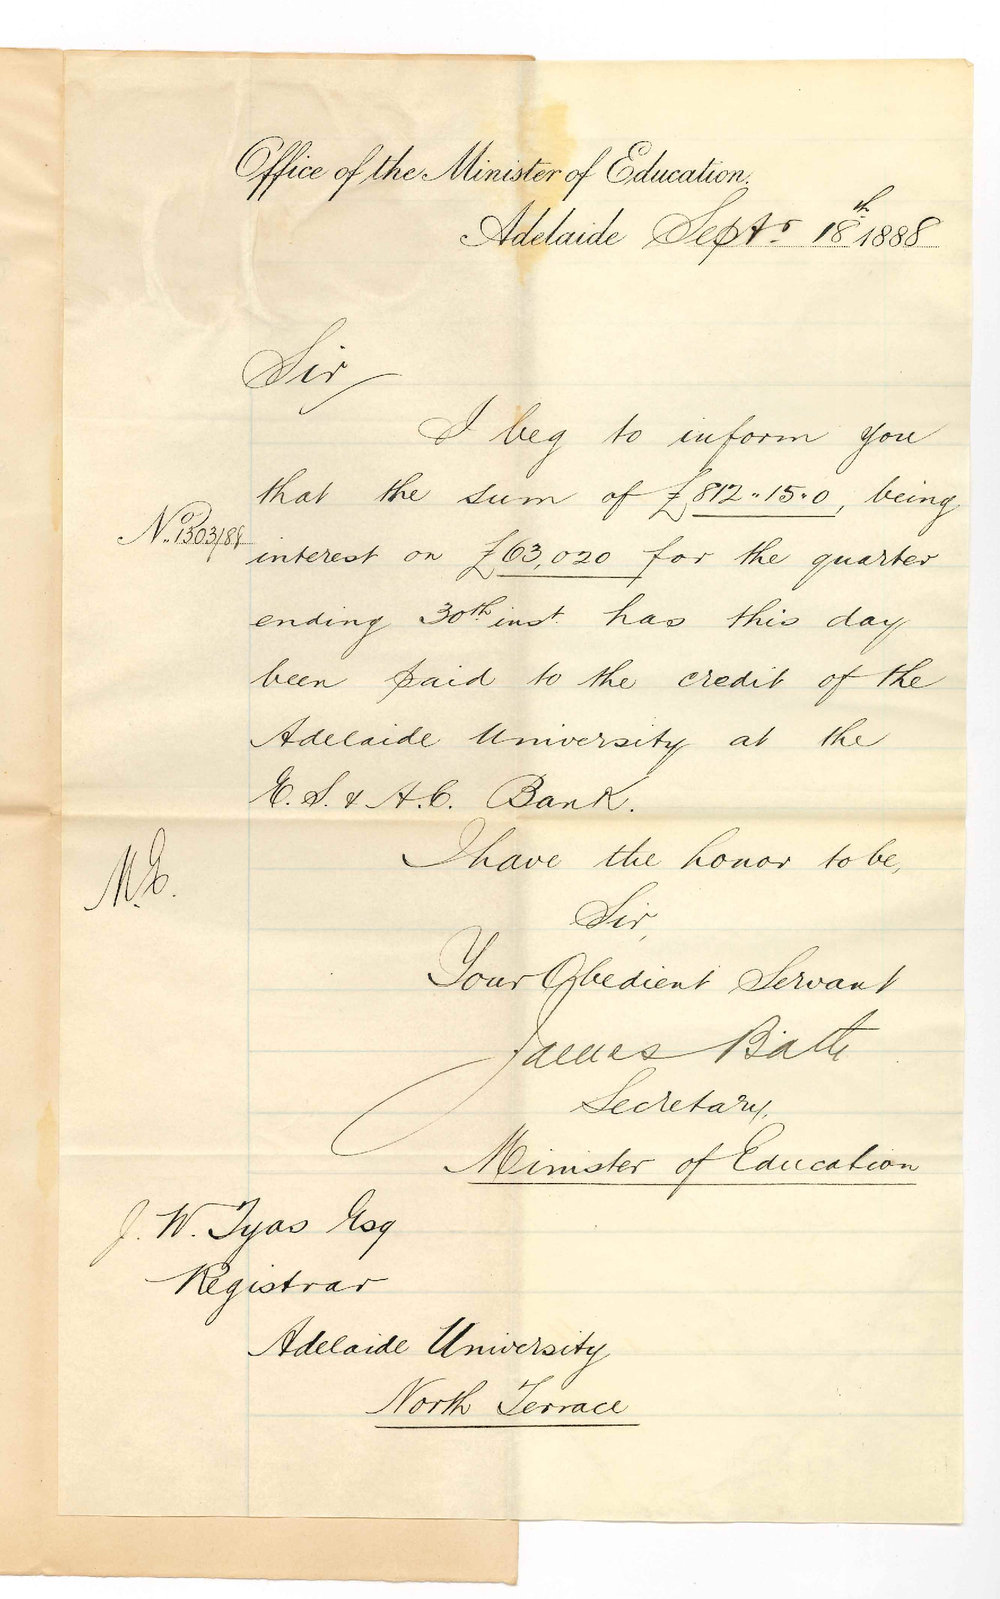 Office of the Minister of Education.
Adelaide Septr 18th 1888
Sir
I beg to inform you
that the sum of £812.15.0, being
No. 1303/88
interest on £63,020 for the quarter
ending 30th inst. has this day
been paid to the credit of the
Adelaide University at the
E. S. & A. C. Bank.
I have the honor to be,
M.E.
Sir,
Your Obedient Servant
James Bath
Secretary.
Minister of Education
J. W. Tyas Esq
Registrar
Adelaide University
North Terrace